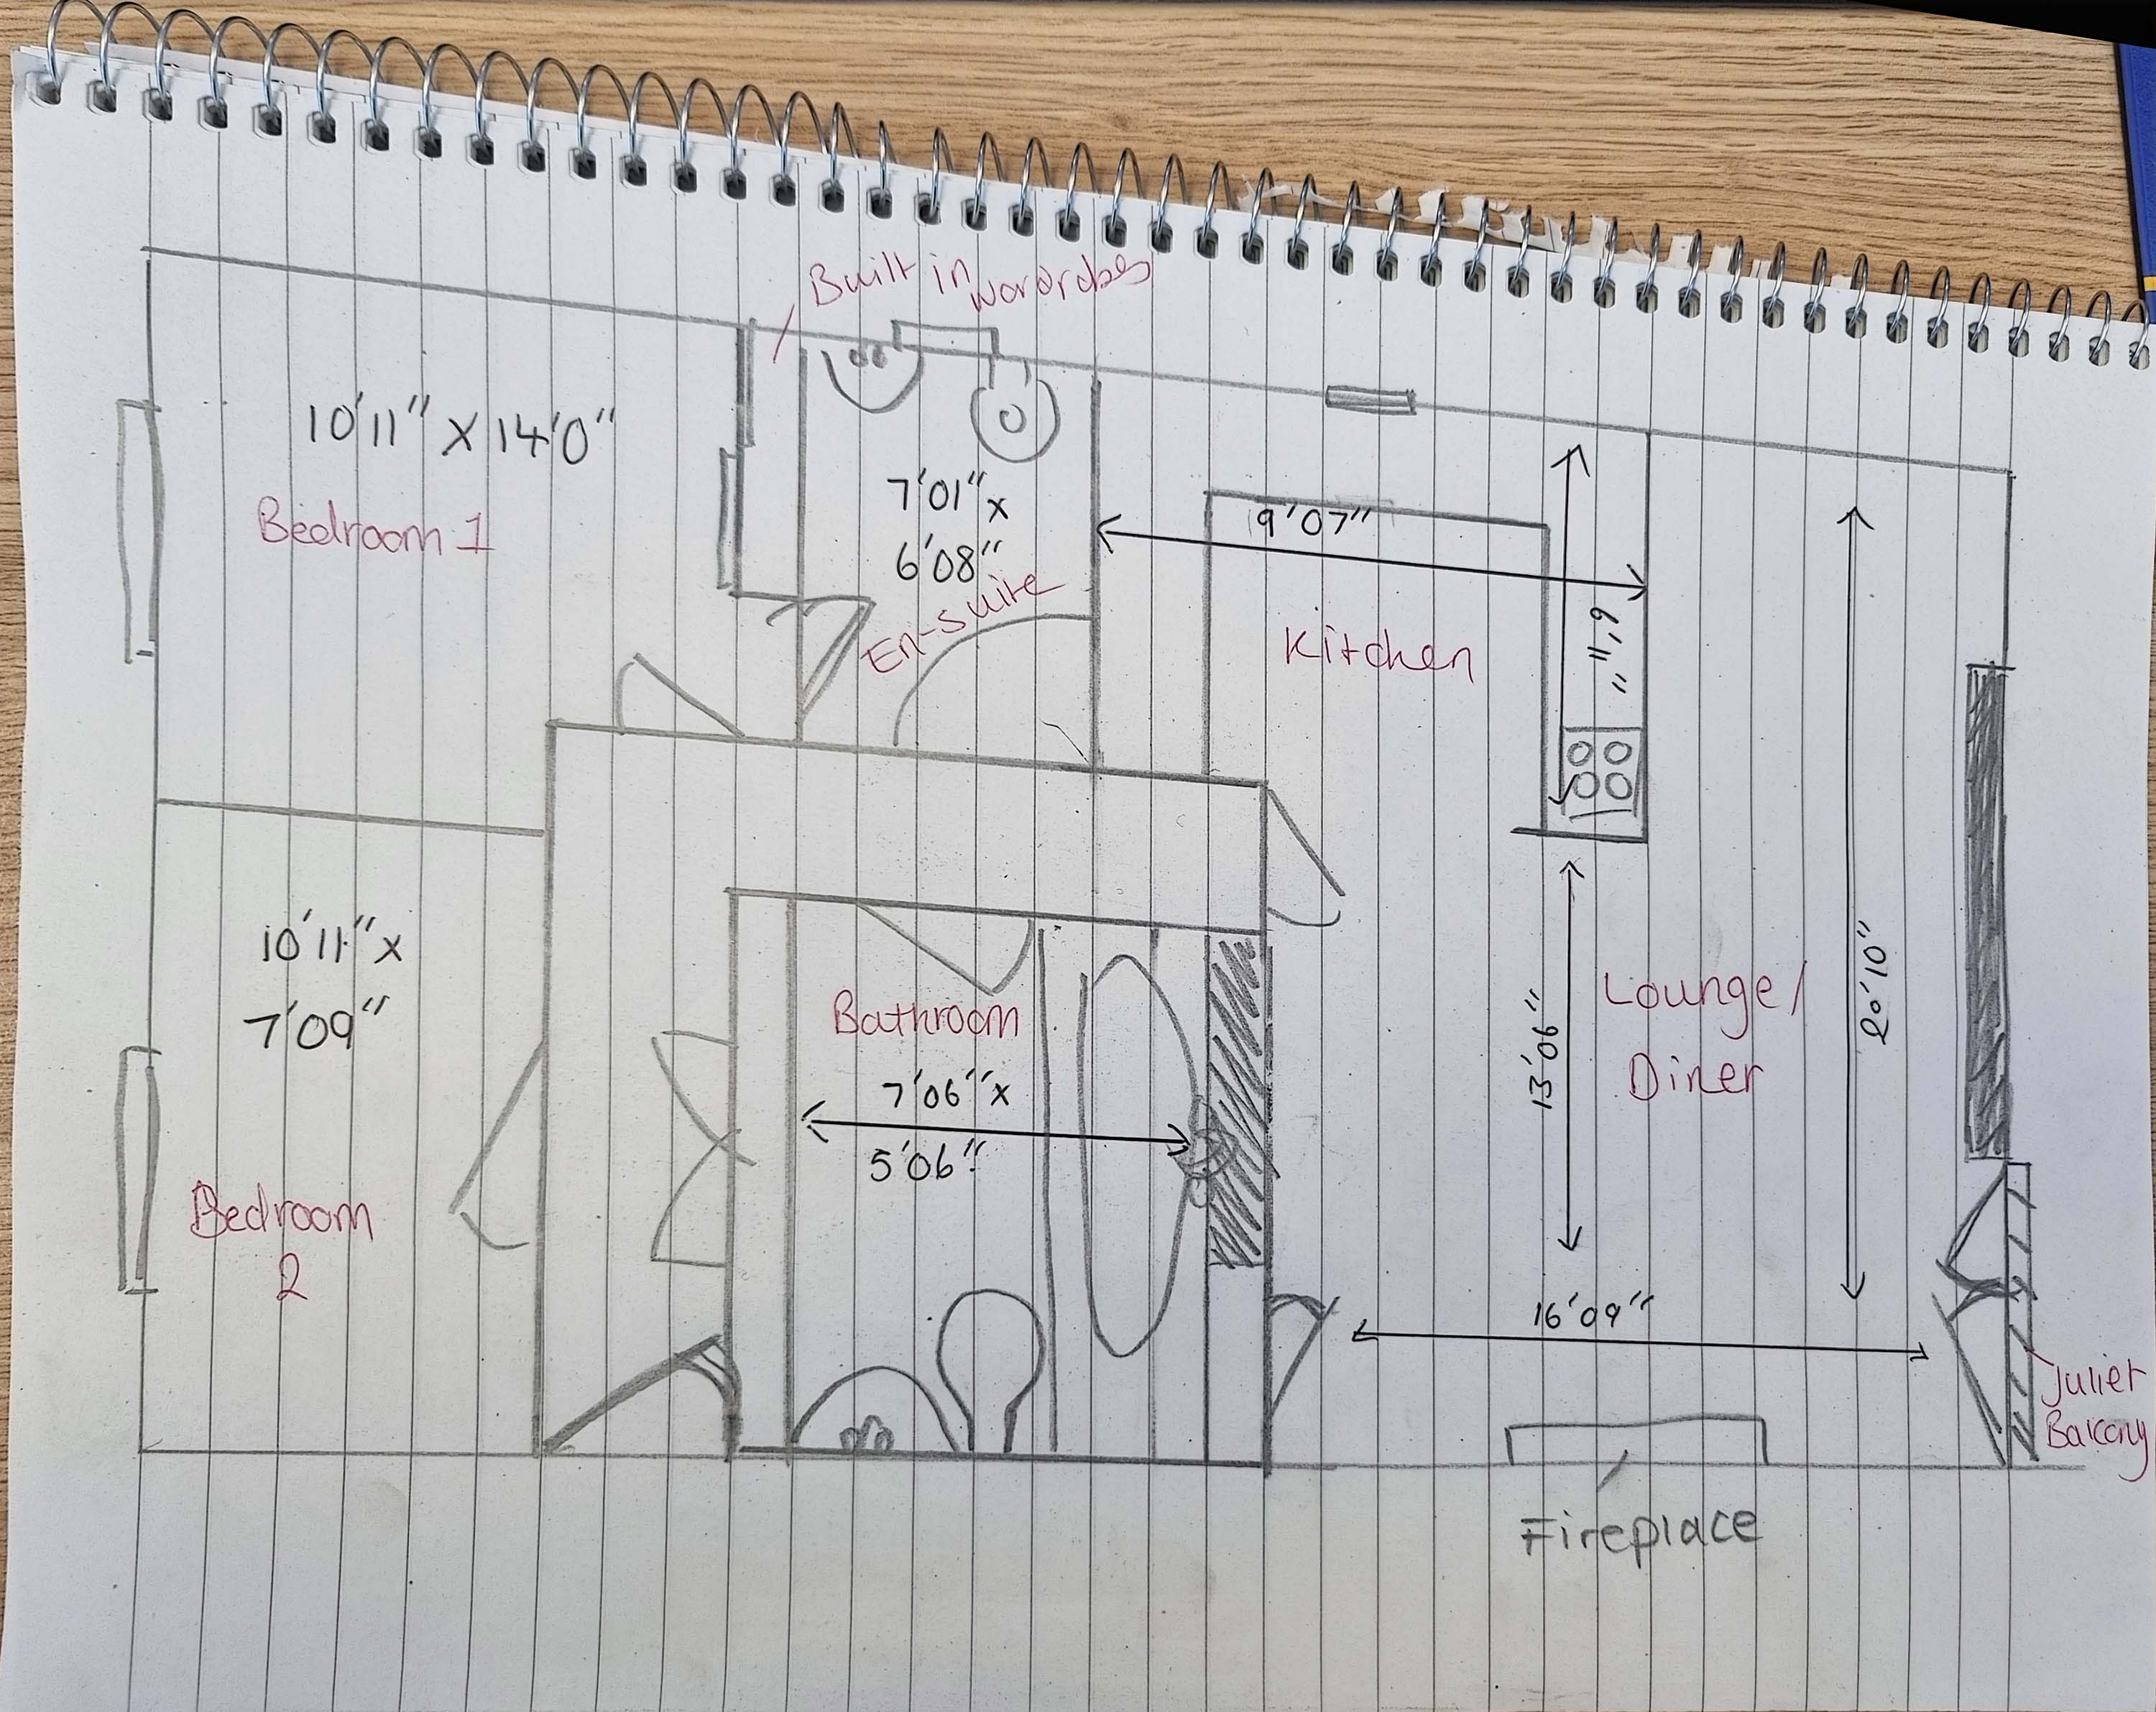 Built in wardrobes
10'11" x 14'0"
Bedroom 1
7'01" x
6'08"
En-suite
9'07"
6',11"
Kitchen
10'11" x
7'09"
Bedroom
2
Bathroom
7'06" x
5'06"
13'06"
Lounge/
Diner
20'10"
16'09"
Juliet
Balcony
Fireplace